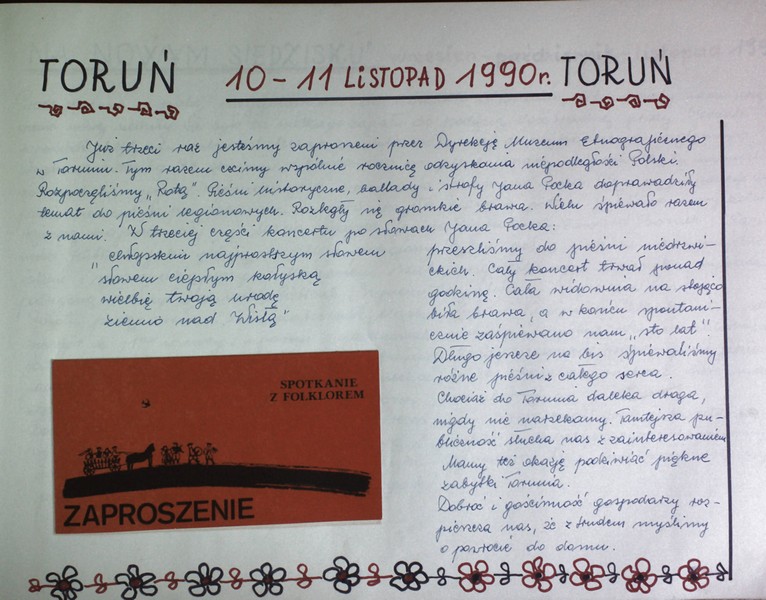 TORUŃ 10-11 LISTOPAD 1990r. TORUŃ
Już trzeci raz jesteśmy zaproszeni przez Dyrekcję Muzeum Etnograficznego
w Toruniu. Tym razem czcimy wspólnie rocznicę odzyskania niepodległości Polski.
Rozpoczęliśmy „Rotą". Pieśni historyczne, ballady i strofy Jana Pocka doprowadziły
temat do pieśni legionowych. Rozległy się gromkie brawa. Wielu śpiewało razem
z nami. W trzeciej części koncertu po słowach Jana Pocka:
"chłopskim najprostszym słowem
słowem ciepłym kołyską
wielbię twoją urodę
ziemio nad Wisłą"
przeszliśmy do pieśni niedrzwi-
ckich. Cały koncert trwał ponad
godzinę. Cała widownia na stojąco
biła brawa, a w końcu spontani-
cznie zaśpiewano nam „sto lat".
Długo jeszcze na bis śpiewaliśmy
różne pieśni z całego serca.
Chociaż do Torunia daleka droga,
nigdy nie narzekamy. Tamtejsza pu-
bliczność słucha nas z zainteresowaniem
Mamy też okazję podziwiać piękne
zabytki Torunia.
Dobroć i gościnność gospodarzy roz-
pieszcza nas, że z trudem myślimy
o powrocie do domu.
SPOTKANIE
Z FOLKLOREM
ZAPROSZENIE